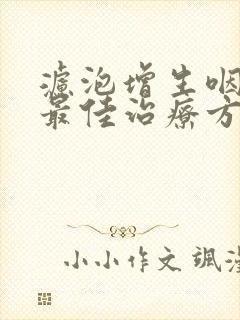 濾泡增生咽
最佳治療方
小小作文 颯漫